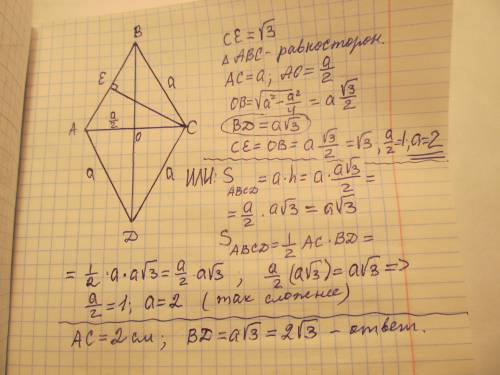 CE=√3
△ABC - равносторон.
AC=a; AO=a/2
OB=√(a²-a²/4)=a√3/2
BD=a√3
CE=OB=a√3/2=√3, a/2=1, a=2
ИЛИ: S ABCD = a·h = a·a√3/2 =
= a/2·a√3 = a√3
S ABCD = 1/2 AC·BD =
= 1/2·a·a√3 = a/2·a√3, a/2(a√3) = a√3 =>
a/2=1; a=2 (так сложнее)
AC=2 см; BD=a√3=2√3 - ответ.
B
E
a
a/2
A
O
C
a
a
D